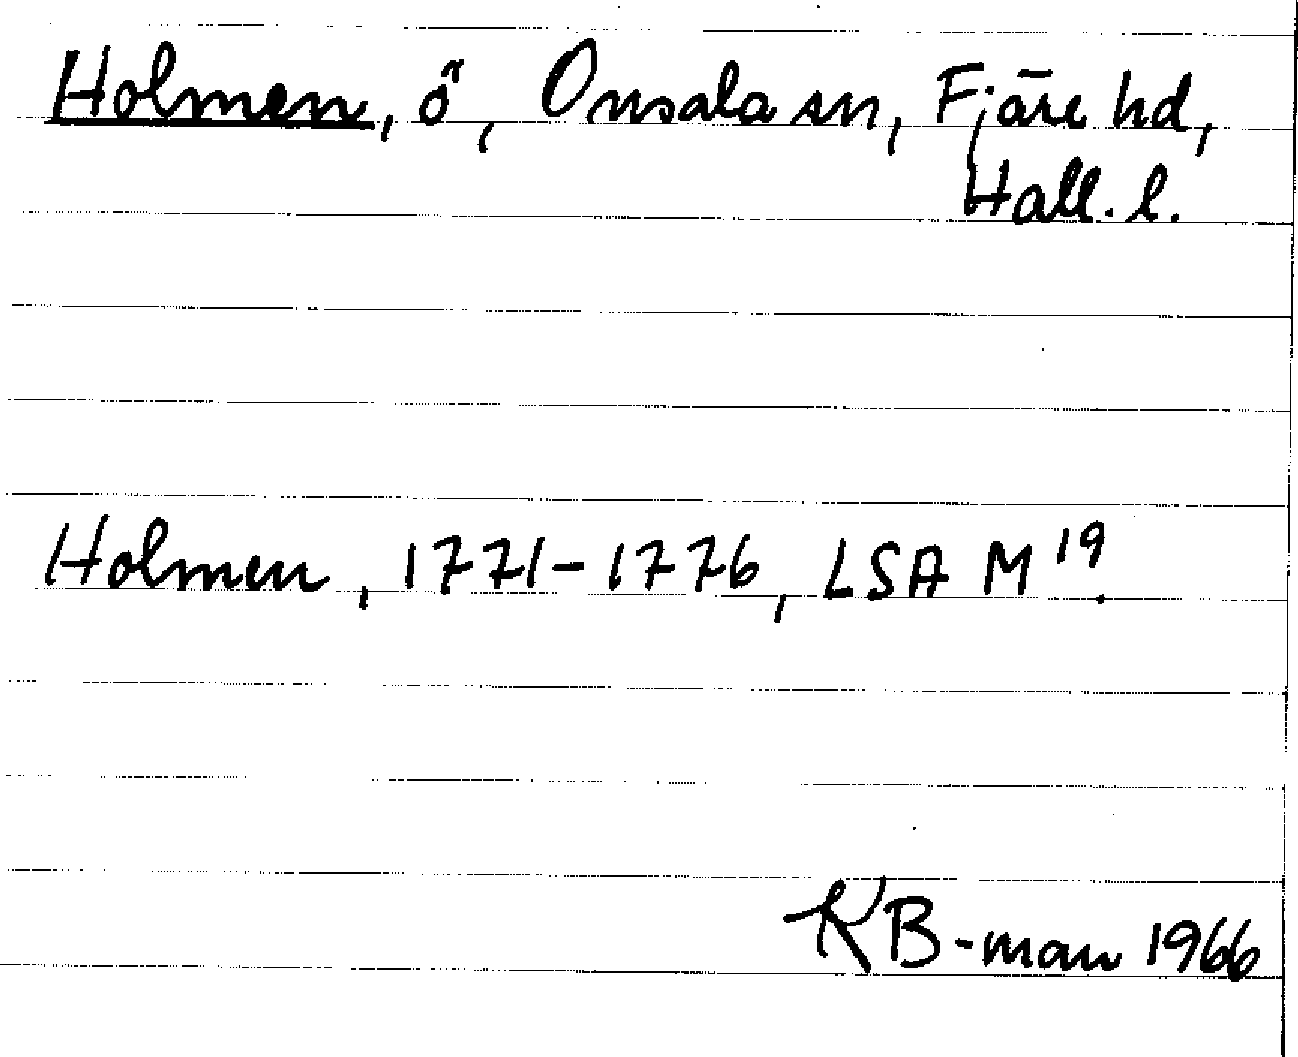 Holmen, ö, Onsala sn, Fjäre hd,
Hall. l.
Holmen, 1771-1776, LSA M 19.
KB-man 1966